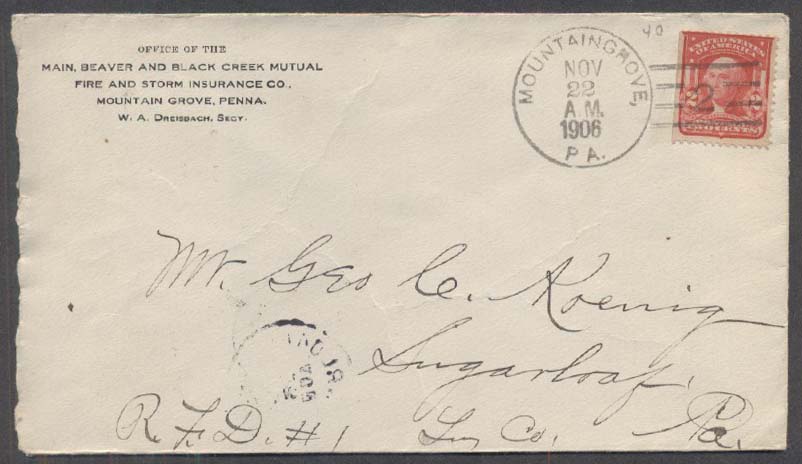 OFFICE OF THE
MAIN, BEAVER AND BLACK CREEK MUTUAL
FIRE AND STORM INSURANCE CO.,
MOUNTAIN GROVE, PENNA.
W. A. DREISBACH, SECY.
40
MOUNTAINGROVE,
NOV
22
A.M.
1906
PA.
UNITED STATES
OF AMERICA
2 2
TWO CENTS
2
Mr. Geo C. Koenig
Sugarloaf,
R.F.D. #1 Luz Co. Pa.